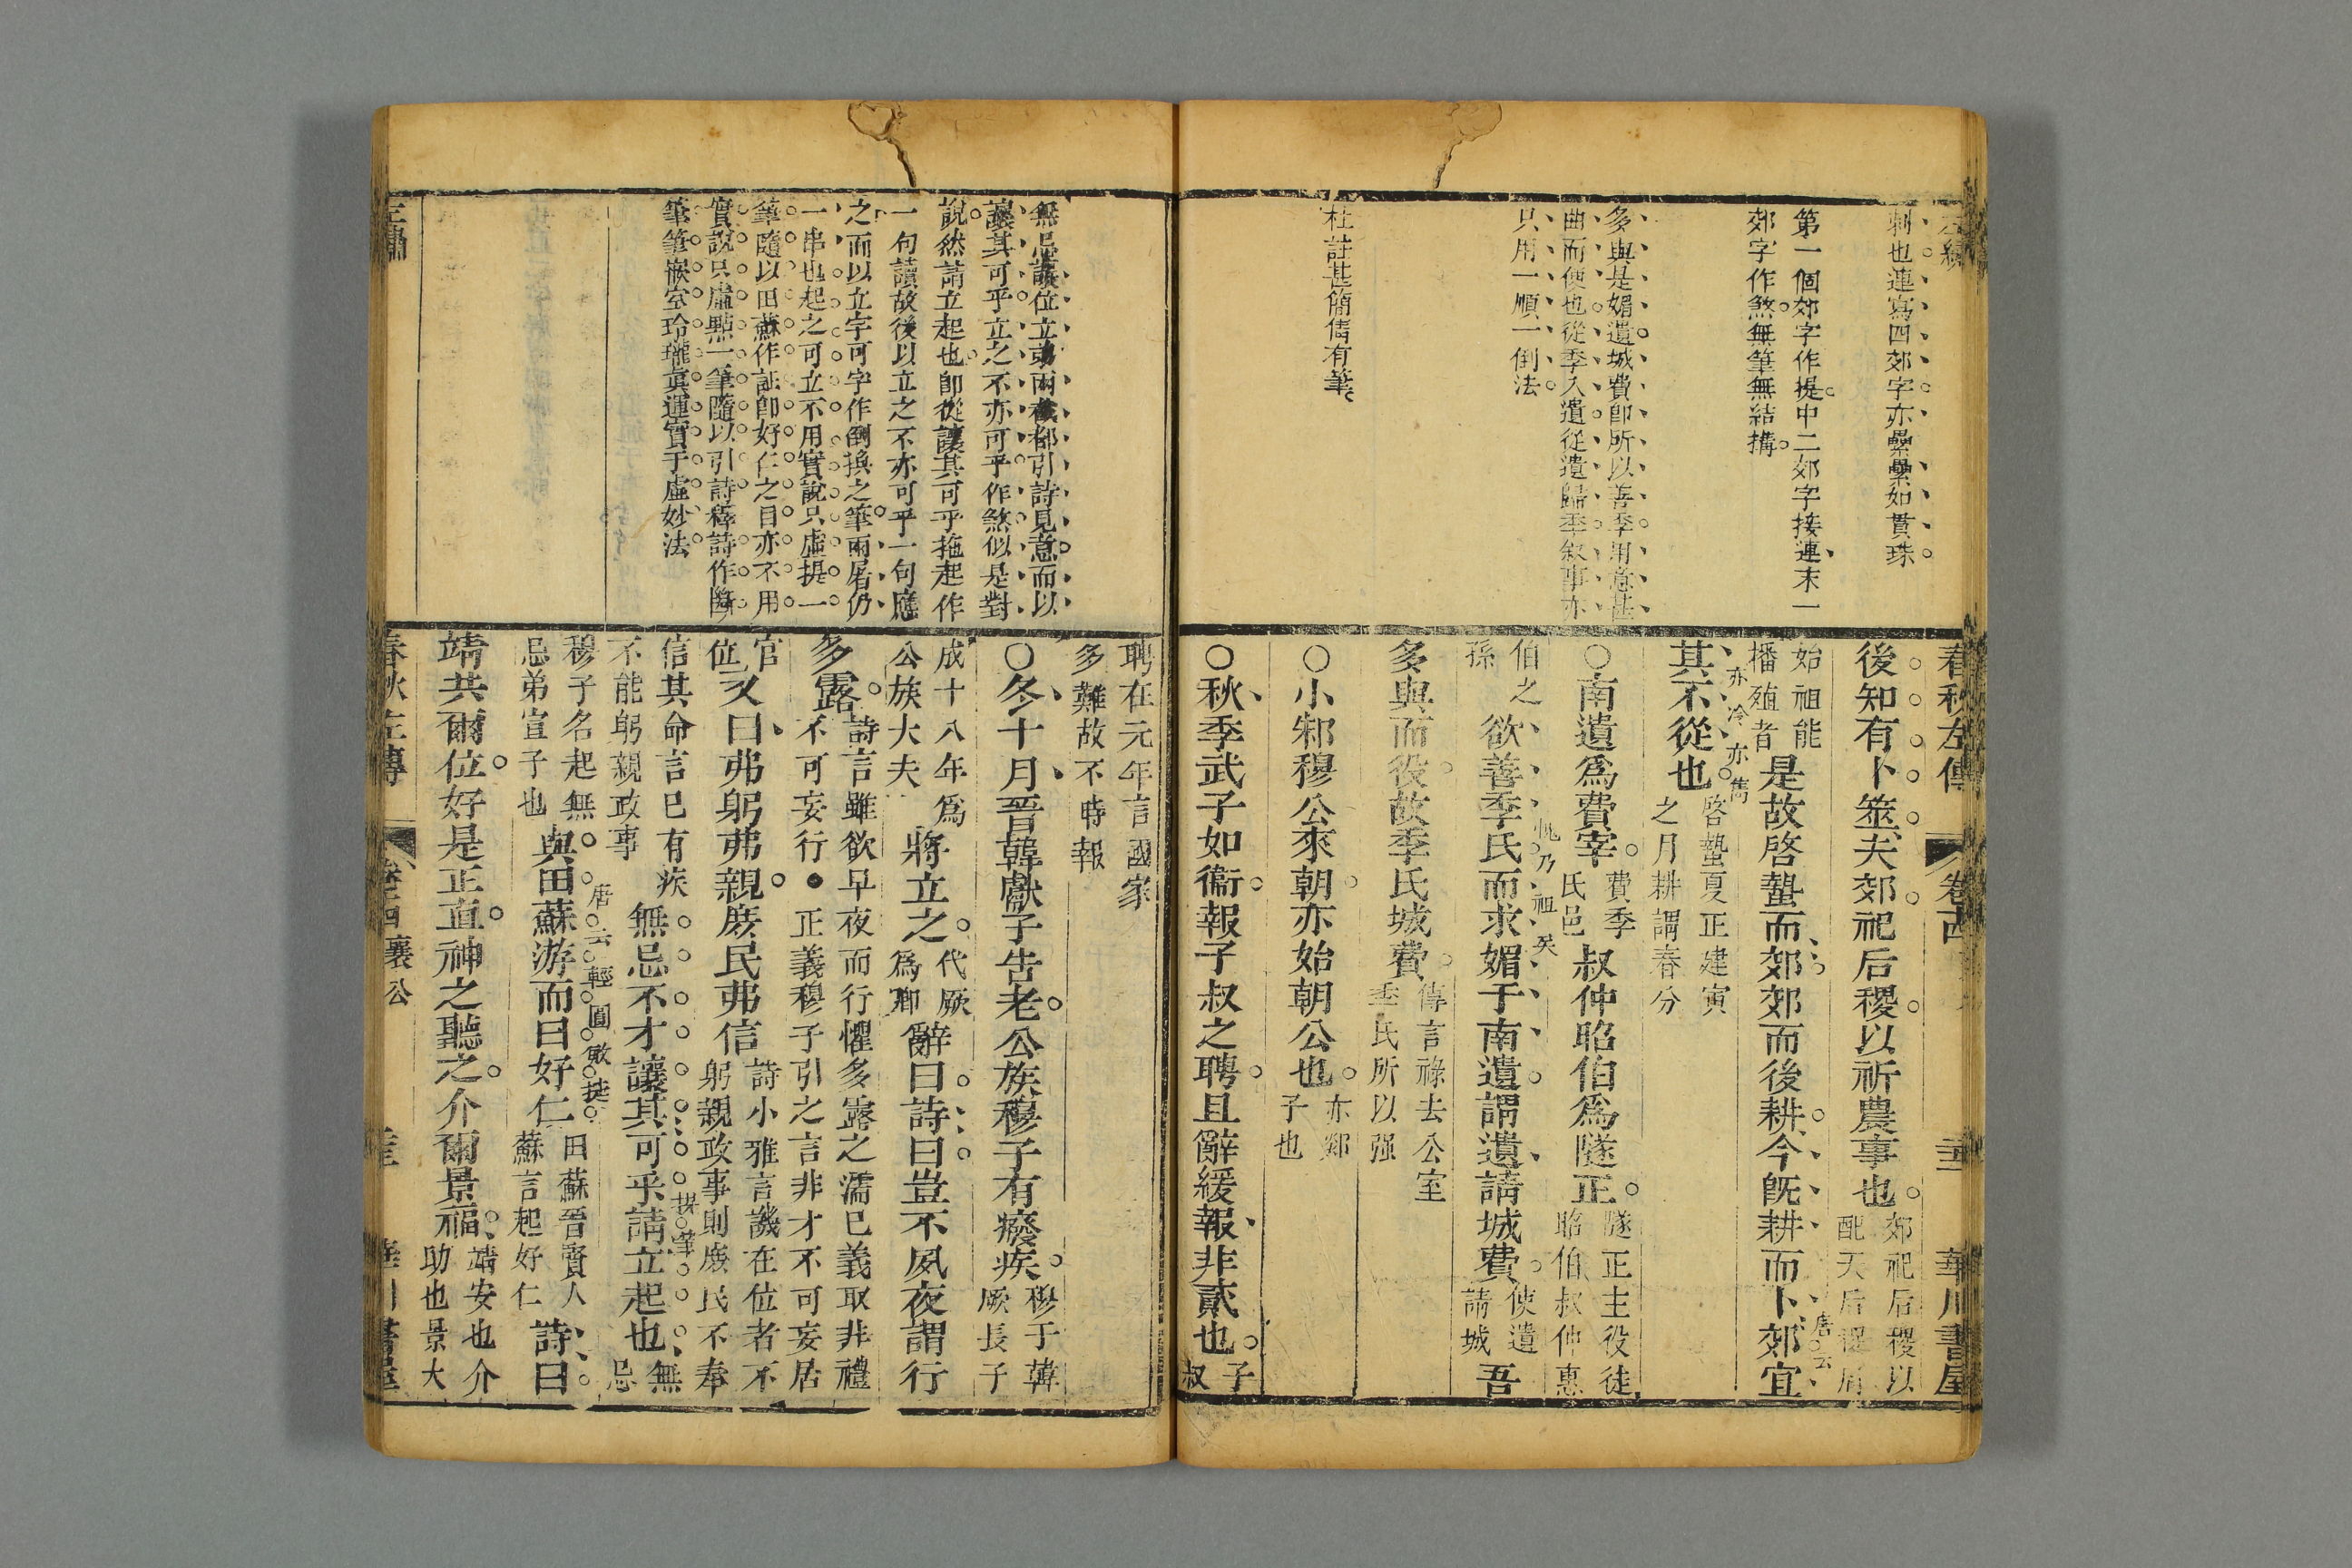 春秋左傳 卷十四
華川書屋
刺也連寫四郊字亦纍纍如貫珠
第一個郊字作提中二郊字接連末一
郊字作煞無筆無結搆
多與是媚遺城費卽所以善季用意甚
曲而使也從季入遺從遺歸季叙事亦
只用一順一倒法
杜註甚簡雋有筆
後知有卜筮夫郊祀后稷以祈農事也
郊祀后稷以
配天后稷周
始祖能
播殖者
是故啓蟄而郊郊而後耕今旣耕而卜郊宜
唐云
亦冷亦雋
其不從也
啓蟄夏正建寅
之月耕謂春分
○南遺爲費宰
費季
氏邑
叔仲昭伯爲隧正
隧正主役徒
昭伯叔仲惠
伯之
孫
欲善季氏而求媚于南遺謂遺請城費
愧乃祖矣
使遺
請城
吾
多與而役故季氏城費
傳言祿去公室
季氏所以强
○小邾穆公來朝亦始朝公也
亦郯
子也
○秋季武子如衞報子叔之聘且辭緩報非貳也
子
叔
無忌讓位立弟兩截都引詩見意而以
讓其可乎立之不亦可乎作煞似是對
說然請立起也卽從讓其可乎拖起作
一句讀故後以立之不亦可乎一句應
之而以立字可字作倒換之筆兩層仍
一串也起之可立不用實說只虛提一
筆隨以田蘇作証卽好仁之目亦不用
實說只虛點一筆隨以引詩釋詩作斷
筆筆嵌空玲瓏眞運實于虛妙法
聘在元年言國家
多難故不時報
○冬十月晉韓獻子告老公族穆子有癈疾
穆于韓
厥長子
成十八年爲
公族大夫
將立之
代厥
爲卿
辭曰詩曰豈不夙夜謂行
多露
詩言雖欲早夜而行懼多露之濡已義取非禮
不可妄行●正義穆子引之言非才不可妄居
官
位
又曰弗躬弗親庶民弗信
詩小雅言譏在位者不
躬親政事則庶民不奉
信其命言已有疾
不能躬親政事
無忌不才讓其可乎請立起也
提筆
無
忌
穆子名起無
忌弟宣子也
與田蘇游而曰好仁
唐云輕圓儆捷
田蘇晉賢人
蘇言起好仁
詩曰
靖共爾位好是正直神之聽之介爾景福
靖安也介
助也景大
春秋左傳 襄公